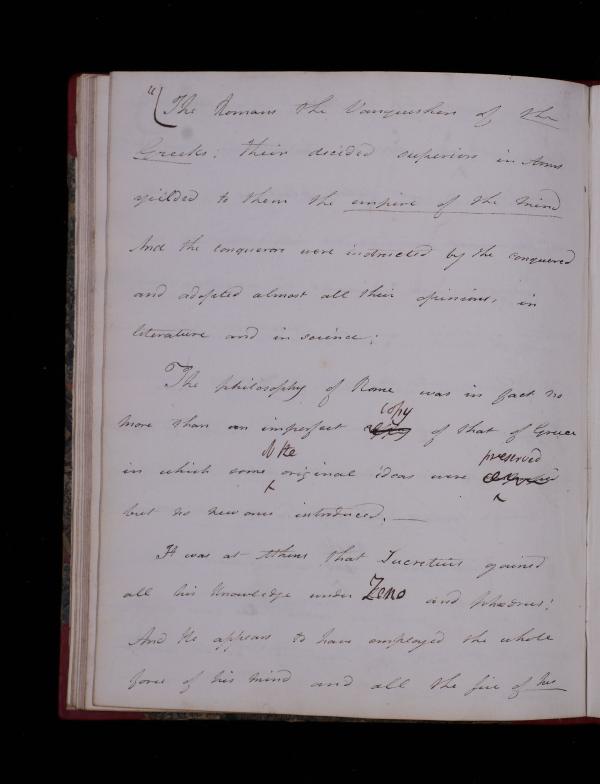 "( The Romans the Vanquishers of the
Greeks; their decided superiors in Arms
yielded to them the empire of the mind
And the conquerors were instructed by the conquered
and adopted almost all their opinions, in
literature and in science;
The philosophy of Rome was in fact no
copy
more than an imperfect of that of Greece
the preserved
in which some original ideas were
but no new ones introduced. —
It was at Athens that Lucretius gained
all his knowledge under Zeno and Phædrus;
And he appears to have employed the whole
force of his mind and all the fire of his